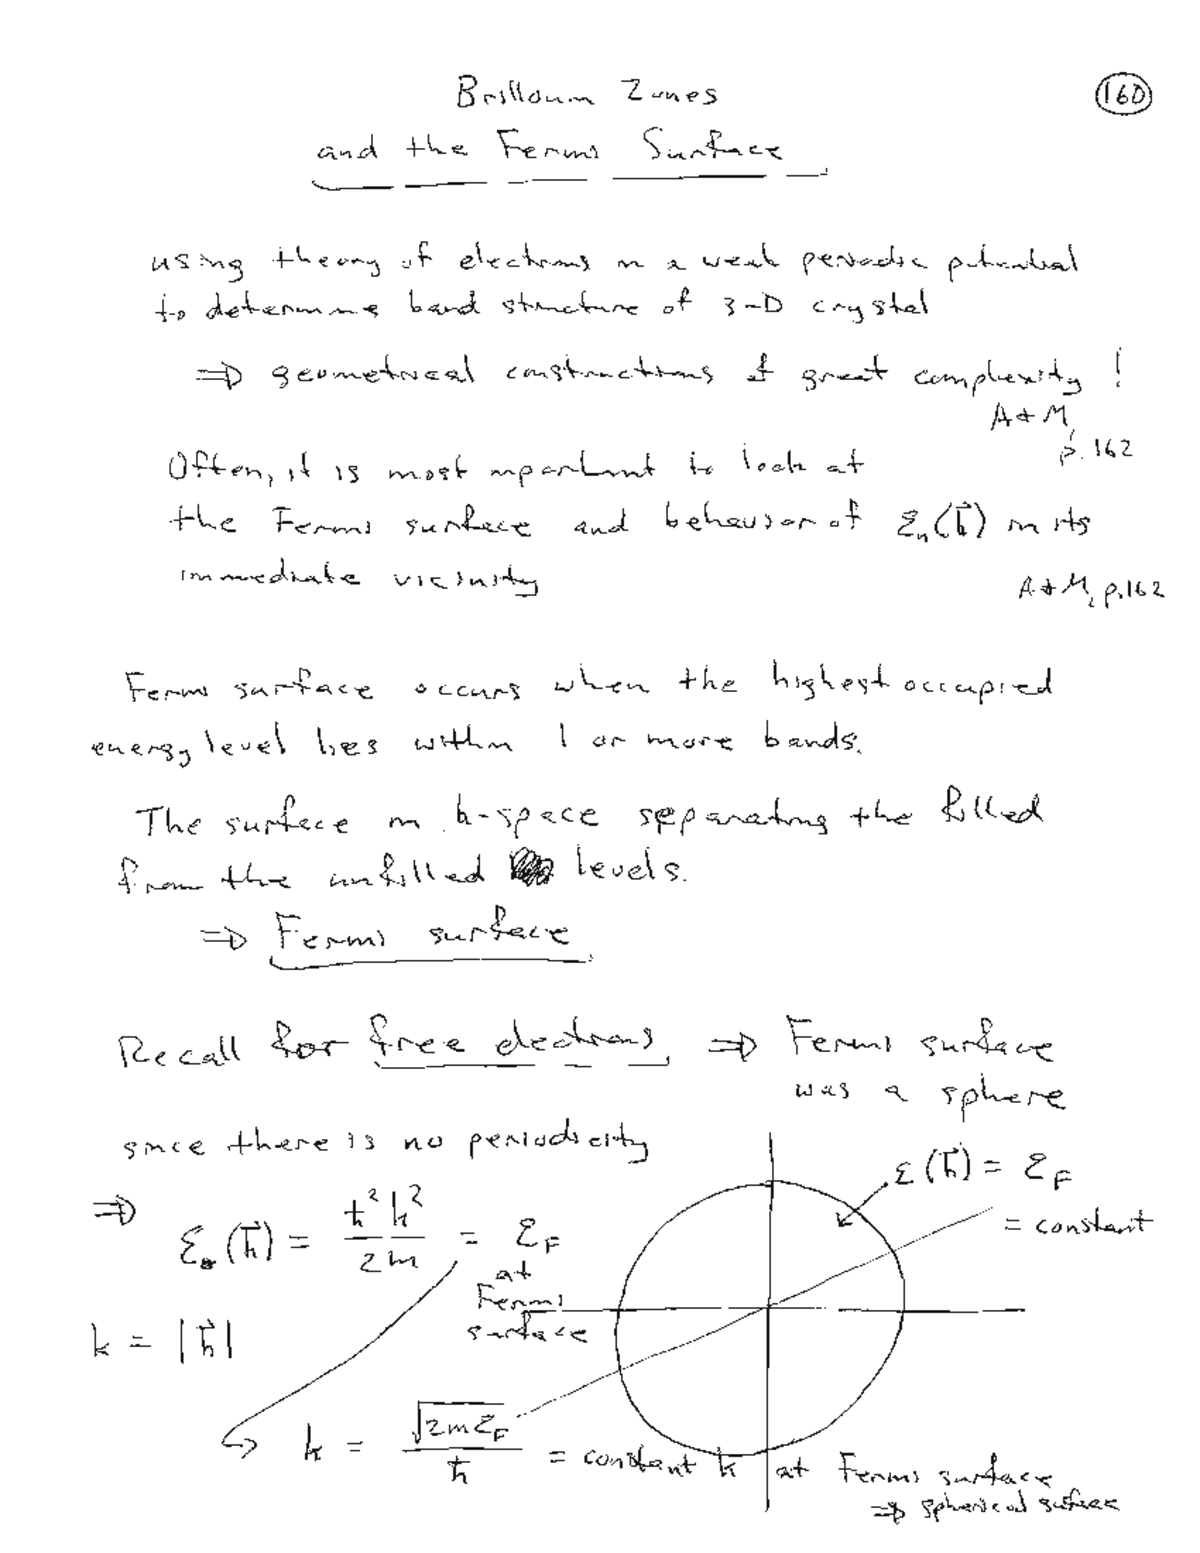 160
Brillouin Zones
and the Fermi Surface
using theory of electrons in a weak periodic potential
to determine band structure of 3-D crystal
⇒ geometrical constructions of great complexity!
A+M,
p. 162
Often, it is most important to look at
the Fermi surface and behavior of ℰₙ(k⃗) in its
immediate vicinity
A+M, p.162
Fermi surface occurs when the highest occupied
energy level lies within 1 or more bands.
The surface in k-space separating the filled
from the unfilled levels.
⇒ Fermi surface
Recall for free electrons, ⇒ Fermi surface
was a sphere
since there is no periodicity
ℰ(k⃗) = ℰ_F
= constant
⇒ ℰ(k⃗) = ħ²k²/2m = ℰ_F
at
Fermi
surface
k = |k⃗|
k = √(2mℰ_F)/ħ = constant k at Fermi surface
⇒ spherical surface